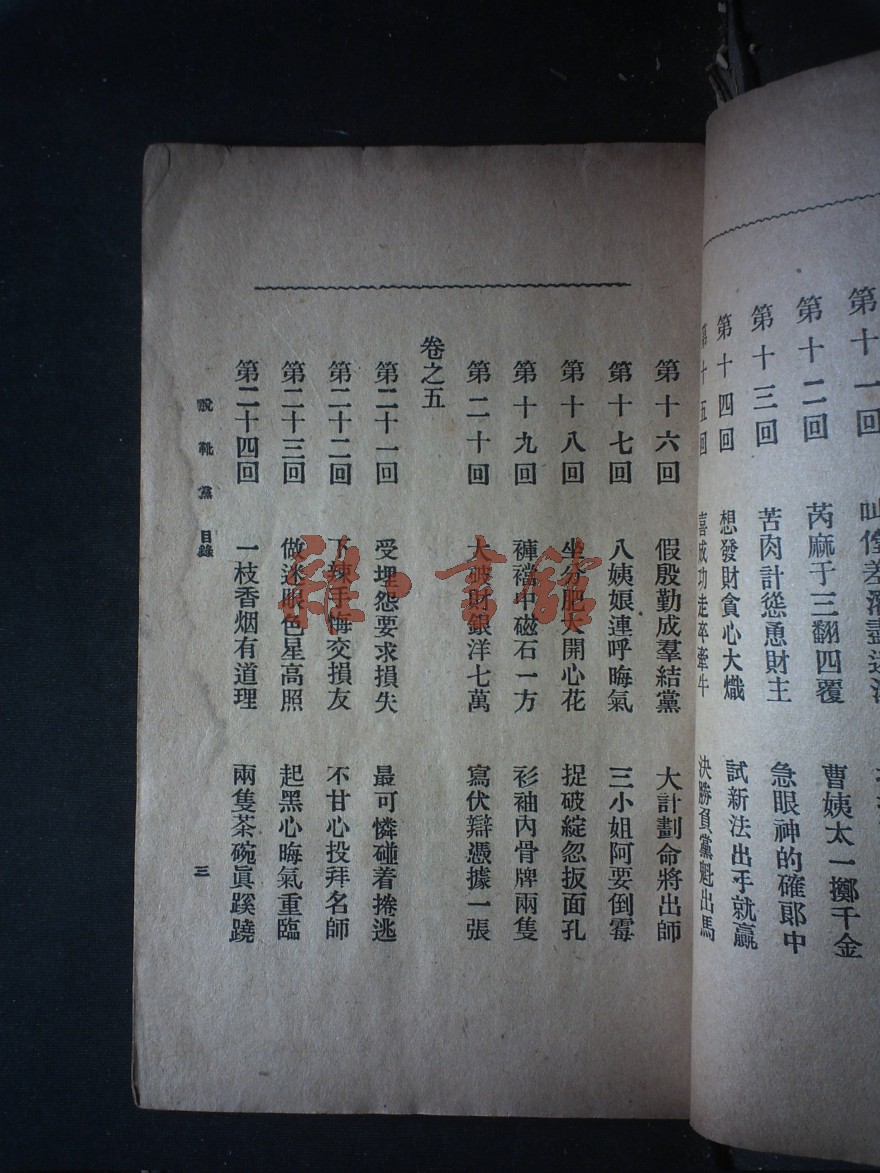 第十一回
第十二回 芮麻子三翻四覆 曹姨太一擲千金
第十三回 苦肉計慫恿財主 急眼神的確郎中
第十四回 想發財貪心大熾 試新法出手就贏
第十五回 喜成功走卒牽牛 決勝負黨魁出馬
第十六回 假殷勤成羣結黨 大計劃命將出師
第十七回 八姨娘連呼晦氣 三小姐阿要倒霉
第十八回 坐分肥大開心花 捉破綻忽扳面孔
第十九回 褲襠中磁石一方 衫袖內骨牌兩隻
第二十回 大破財銀洋七萬 寫伏辯憑據一張
卷之五
第二十一回 受埋怨要求損失 最可憐碰着捲逃
第二十二回 下辣手悔交損友 不甘心投拜名師
第二十三回 做迷眼色星高照 起黑心晦氣重臨
第二十四回 一枝香烟有道理 兩隻茶碗眞蹊蹺
脫靴黨 目錄
三
雜·書館